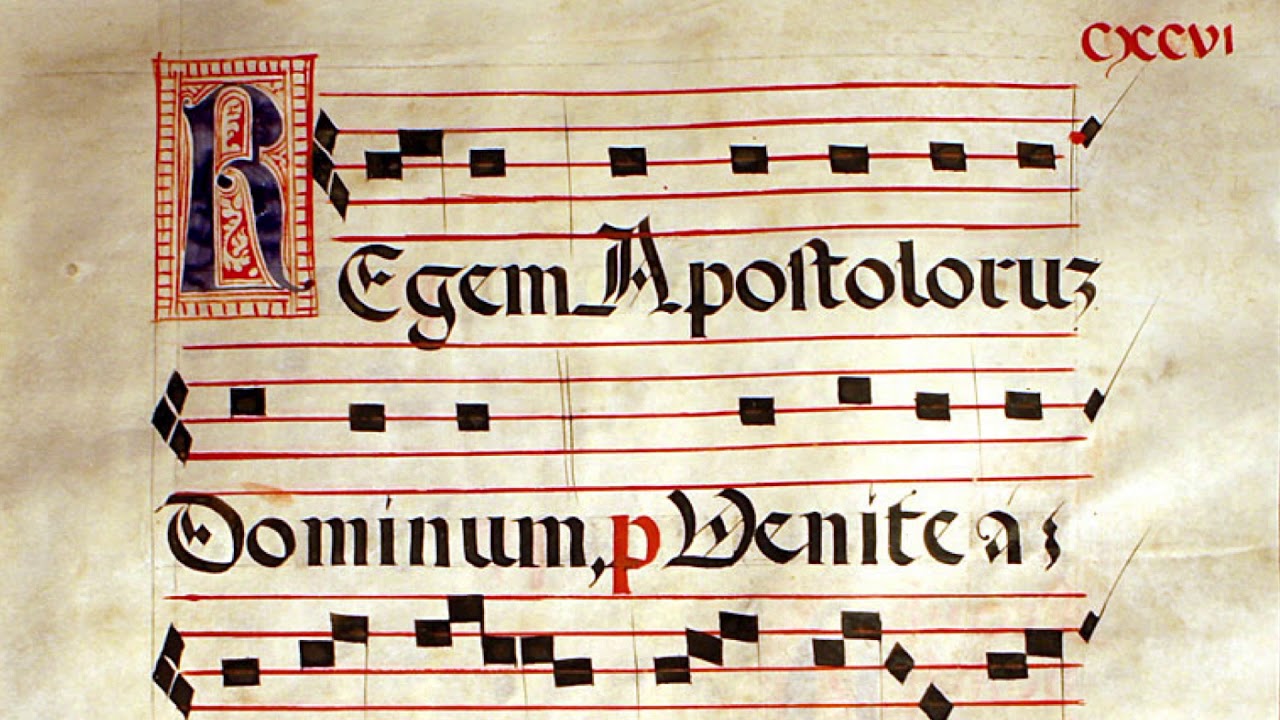 CXCVI
REgem Apoſtoloruꝫ
Dominum, p Venite aꝫ